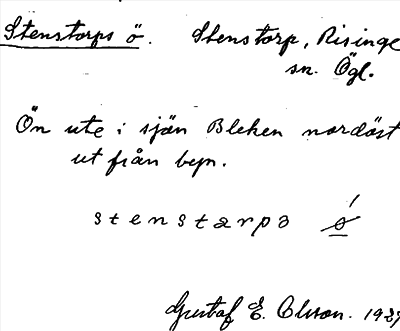 Stenstorps ö. Stenstorp, Risinge
sn. Ögl.
Ön ute i sjön Bleken nordöst
ut från byn.
stenstarpa ǿ
Gustaf E. Olsson. 1939